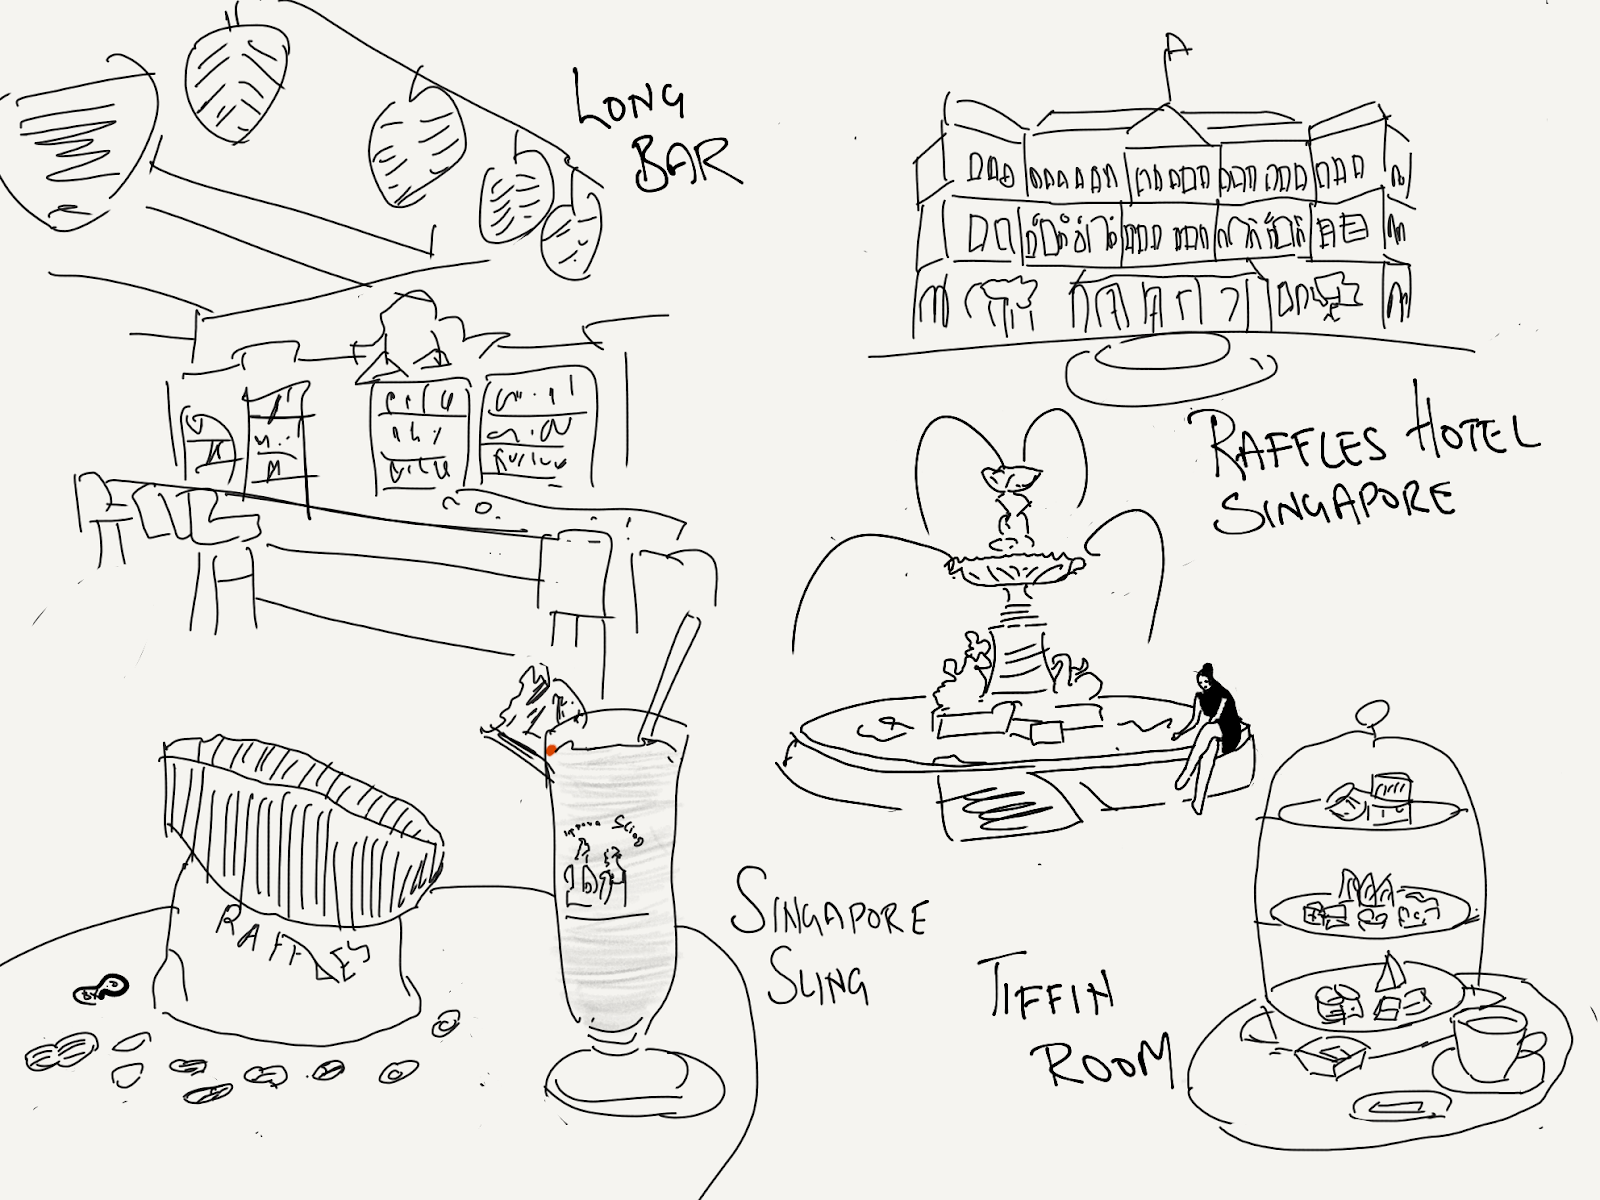 LONG
BAR
RAFFLES HOTEL
SINGAPORE
RAFFLES
SLING
SINGAPORE
SLING
TIFFIN
ROOM